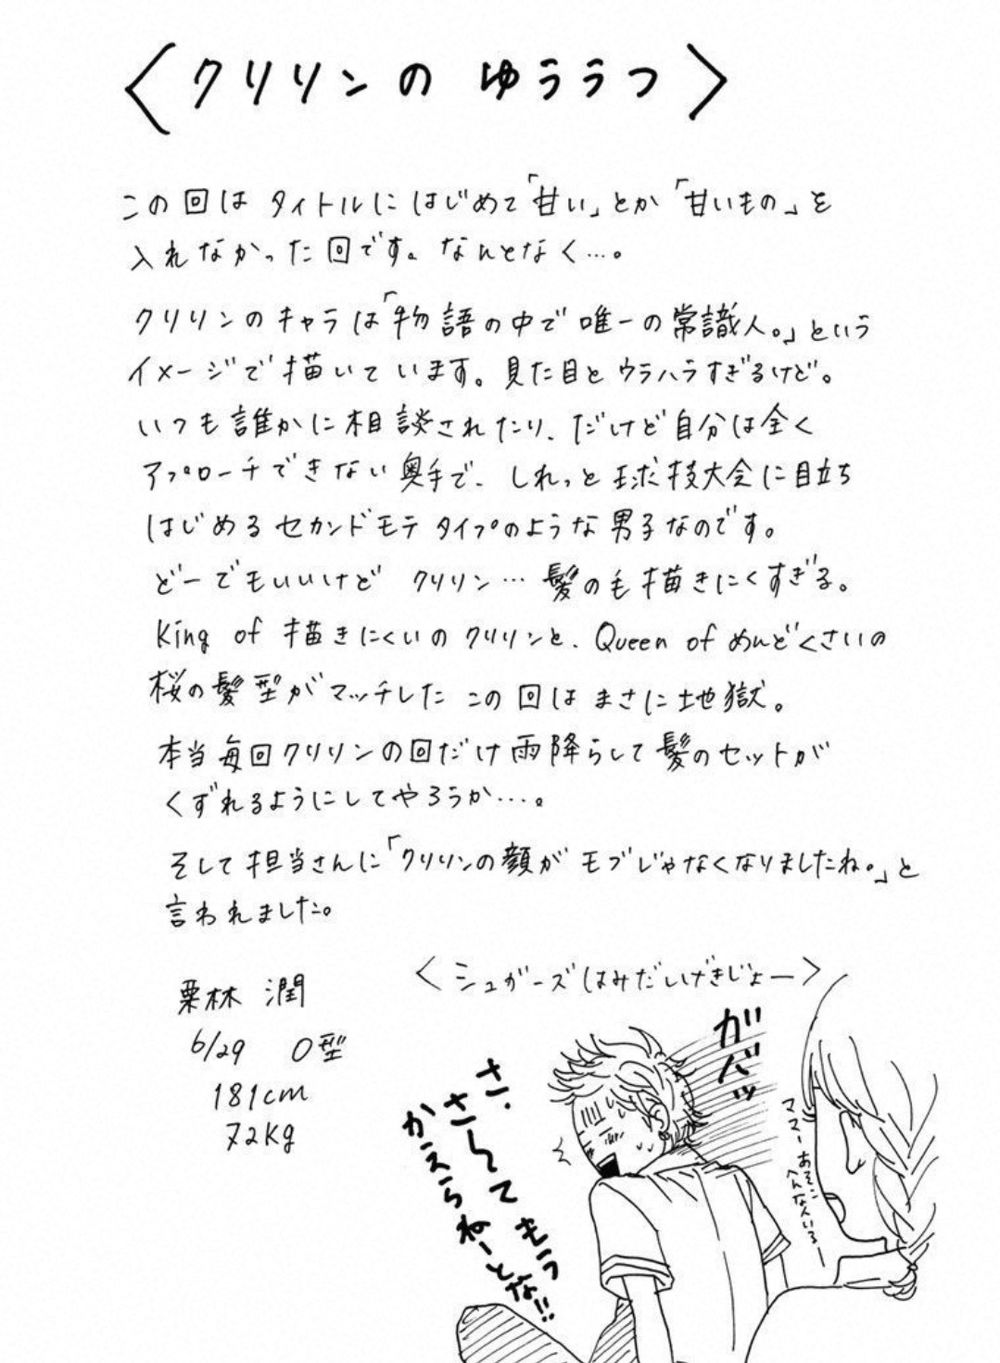 〈クリリンの ゆううつ〉
この回は タイトルに はじめて「甘い」とか「甘いもの」を
入れなかった回です。なんとなく…。
クリリンのキャラは「物語の中で唯一の常識人。」という
イメージで描いています。見た目とウラハラすぎるけど。
いつも誰かに相談されたり、だけど自分は全く
アプローチできない奥手で、しれっと球技大会に目立ち
はじめるセカンドモテタイプのような男子なのです。
どーでもいいけど クリリン…髪の毛描きにくすぎる。
King of 描きにくいのクリリンと、Queen of めんどくさいの
桜の髪型がマッチしたこの回はまさに地獄。
本当毎回クリリンの回だけ雨降らして髪のセットが
くずれるようにしてやろうか…。
そして担当さんに「クリリンの顔がモブじゃなくなりましたね。」と
言われました。
栗林 潤
6/29 O型
181cm
72Kg
〈シュガーズはみだしげきじょー〉
ガバッ
さ、
さーてもう
かえらねーとな!!
ママーあそこ
へんな人いるー